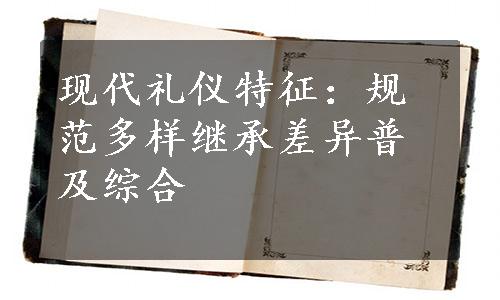 现代礼仪特征：规
范多样继承差异普
及综合